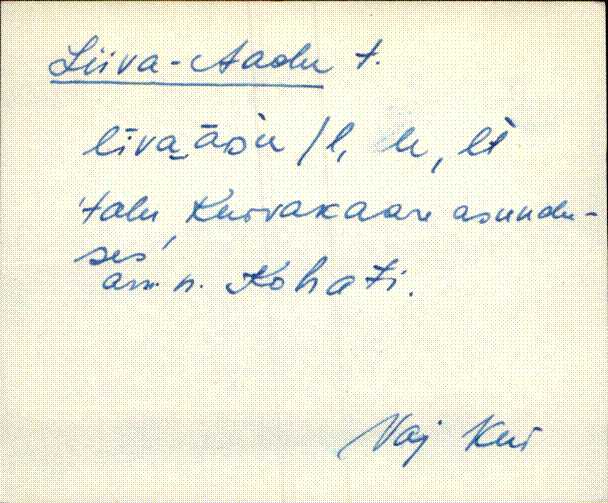 Liiva-Aadu t.
līva_āδu /l, le, lt
'talu Kuivakaare asundu-
ses'
am. n. Kohati.
Vaj Kui